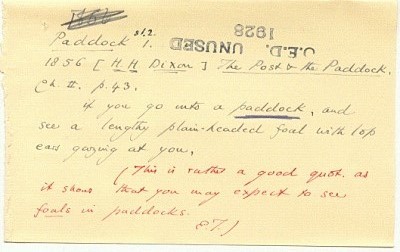 1856
Paddock sb.2. 1.
O.E.D. UNUSED
1928
1856 [H. H. Dixon] The Post & the Paddock.
Ch. II. p. 43.
If you go into a paddock, and
see a lengthy plain-headed foal with lop
ears gazing at you,
(This is rather a good quot. as
it shows that you may expect to see
foals in paddocks.